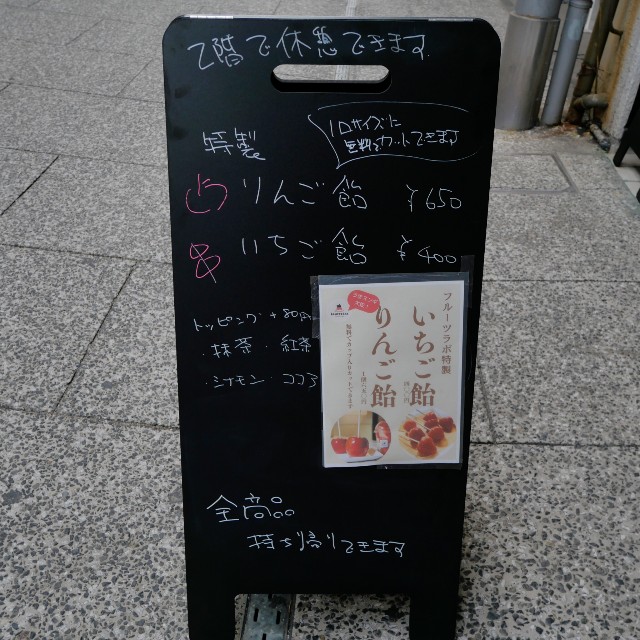 2階で休憩できます
特製
1口サイズに
カットできます
りんご飴 ¥650
いちご飴 ¥400
トッピング +80円
・抹茶 ・紅茶
・シナモン ・ココア
フルーツラボ特製
いちご飴
りんご飴
全商品
持ち帰りできます